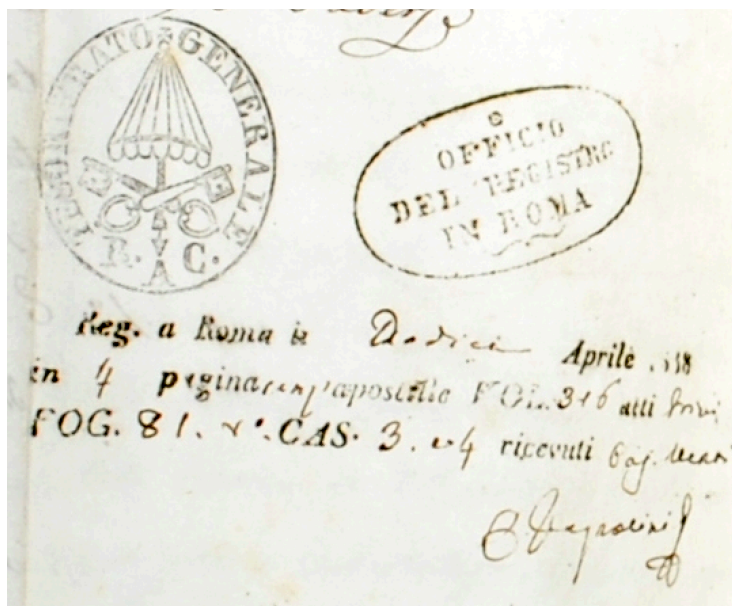 TESORIERATO GENERALE
R. C.
A
OFFICIO
DEL REGISTRO
IN ROMA
Reg. a Roma li Dodici Aprile
in 4 pagina apostille VOL. 316 atti
FOG. 81. r°. CAS. 3. e 4 ricevuti baj.